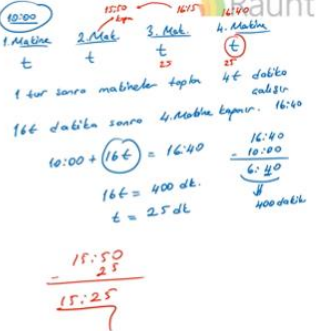 10:00 15:50 16:15 16:40
kapa
1. Makine 2. Mak. 3. Mak. 4. Makine
t t t t
25 25
1 tur sonra makineler toplam 4t dakika
çalışır
16t dakika sonra 4. Makine kapanır. 16:40
10:00 + 16t = 16:40
16:40
- 10:00
6:40
400 dakika
16t = 400 dk.
t = 25 dk
15:50
- 25
15:25
raunt